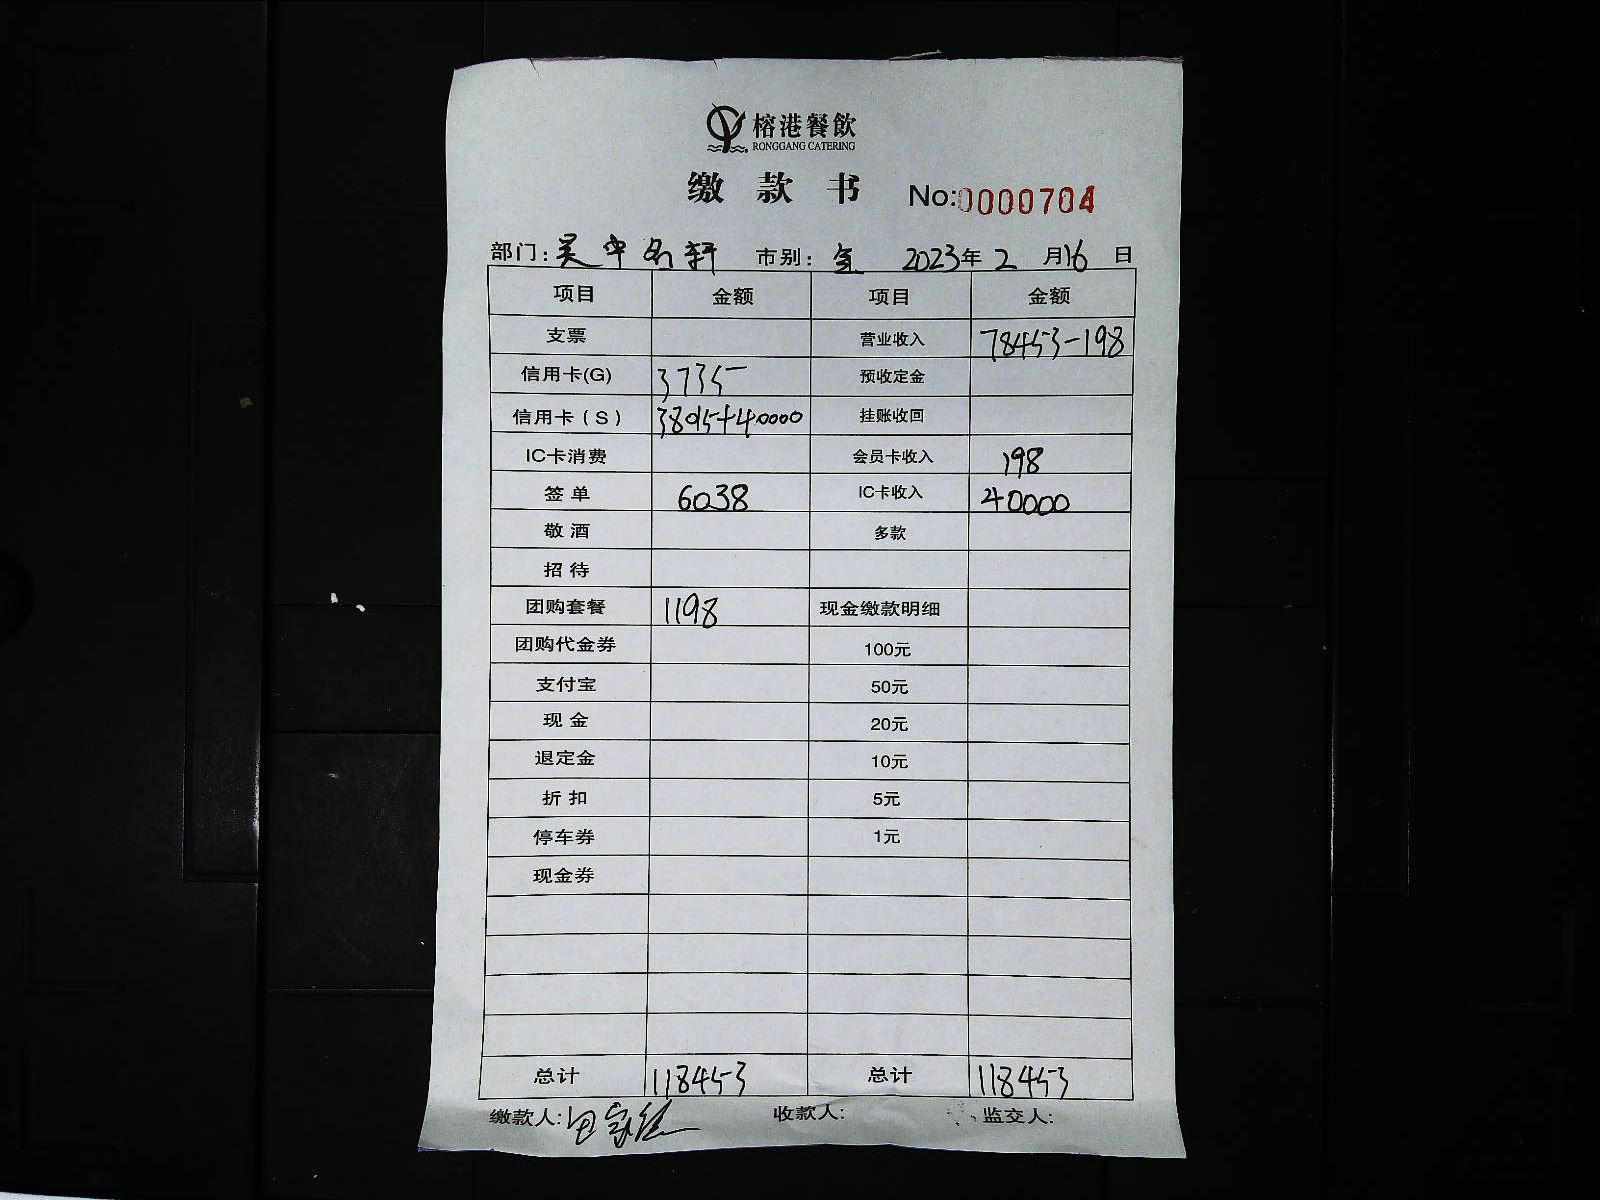 榕港餐飲
RONGGANG CATERING
缴 款 书 No:0000704
部门: 吴中名轩 市别: 全 2023年 2 月 16 日
项目 金额 项目 金额
支票 营业收入 78453-198
信用卡(G) 3735 预收定金
信用卡(S) +40000 挂账收回
IC卡消费 会员卡收入 198
签单 6038 IC卡收入 40000
敬酒 多款
招待
团购套餐 1198 现金缴款明细
团购代金券 100元
支付宝 50元
现金 20元
退定金 10元
折扣 5元
停车券 1元
现金券
总计 118453 总计 118453
缴款人: 收款人: 监交人: